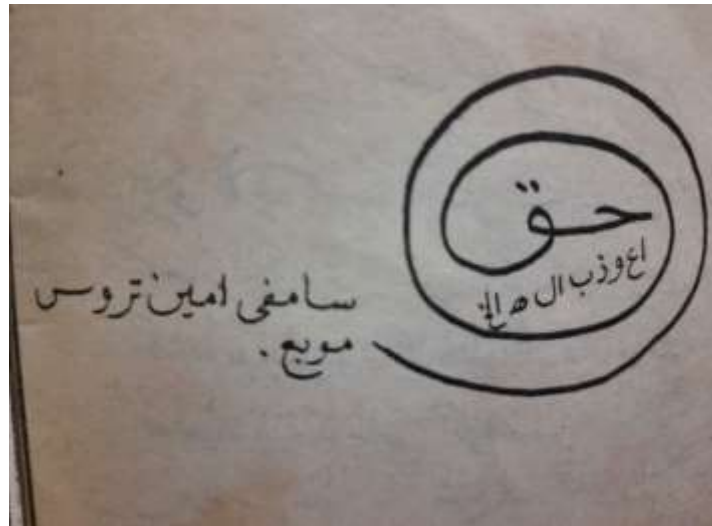 حق
اع وذب ال ه الخ
سامفى امين تروس
موبع.